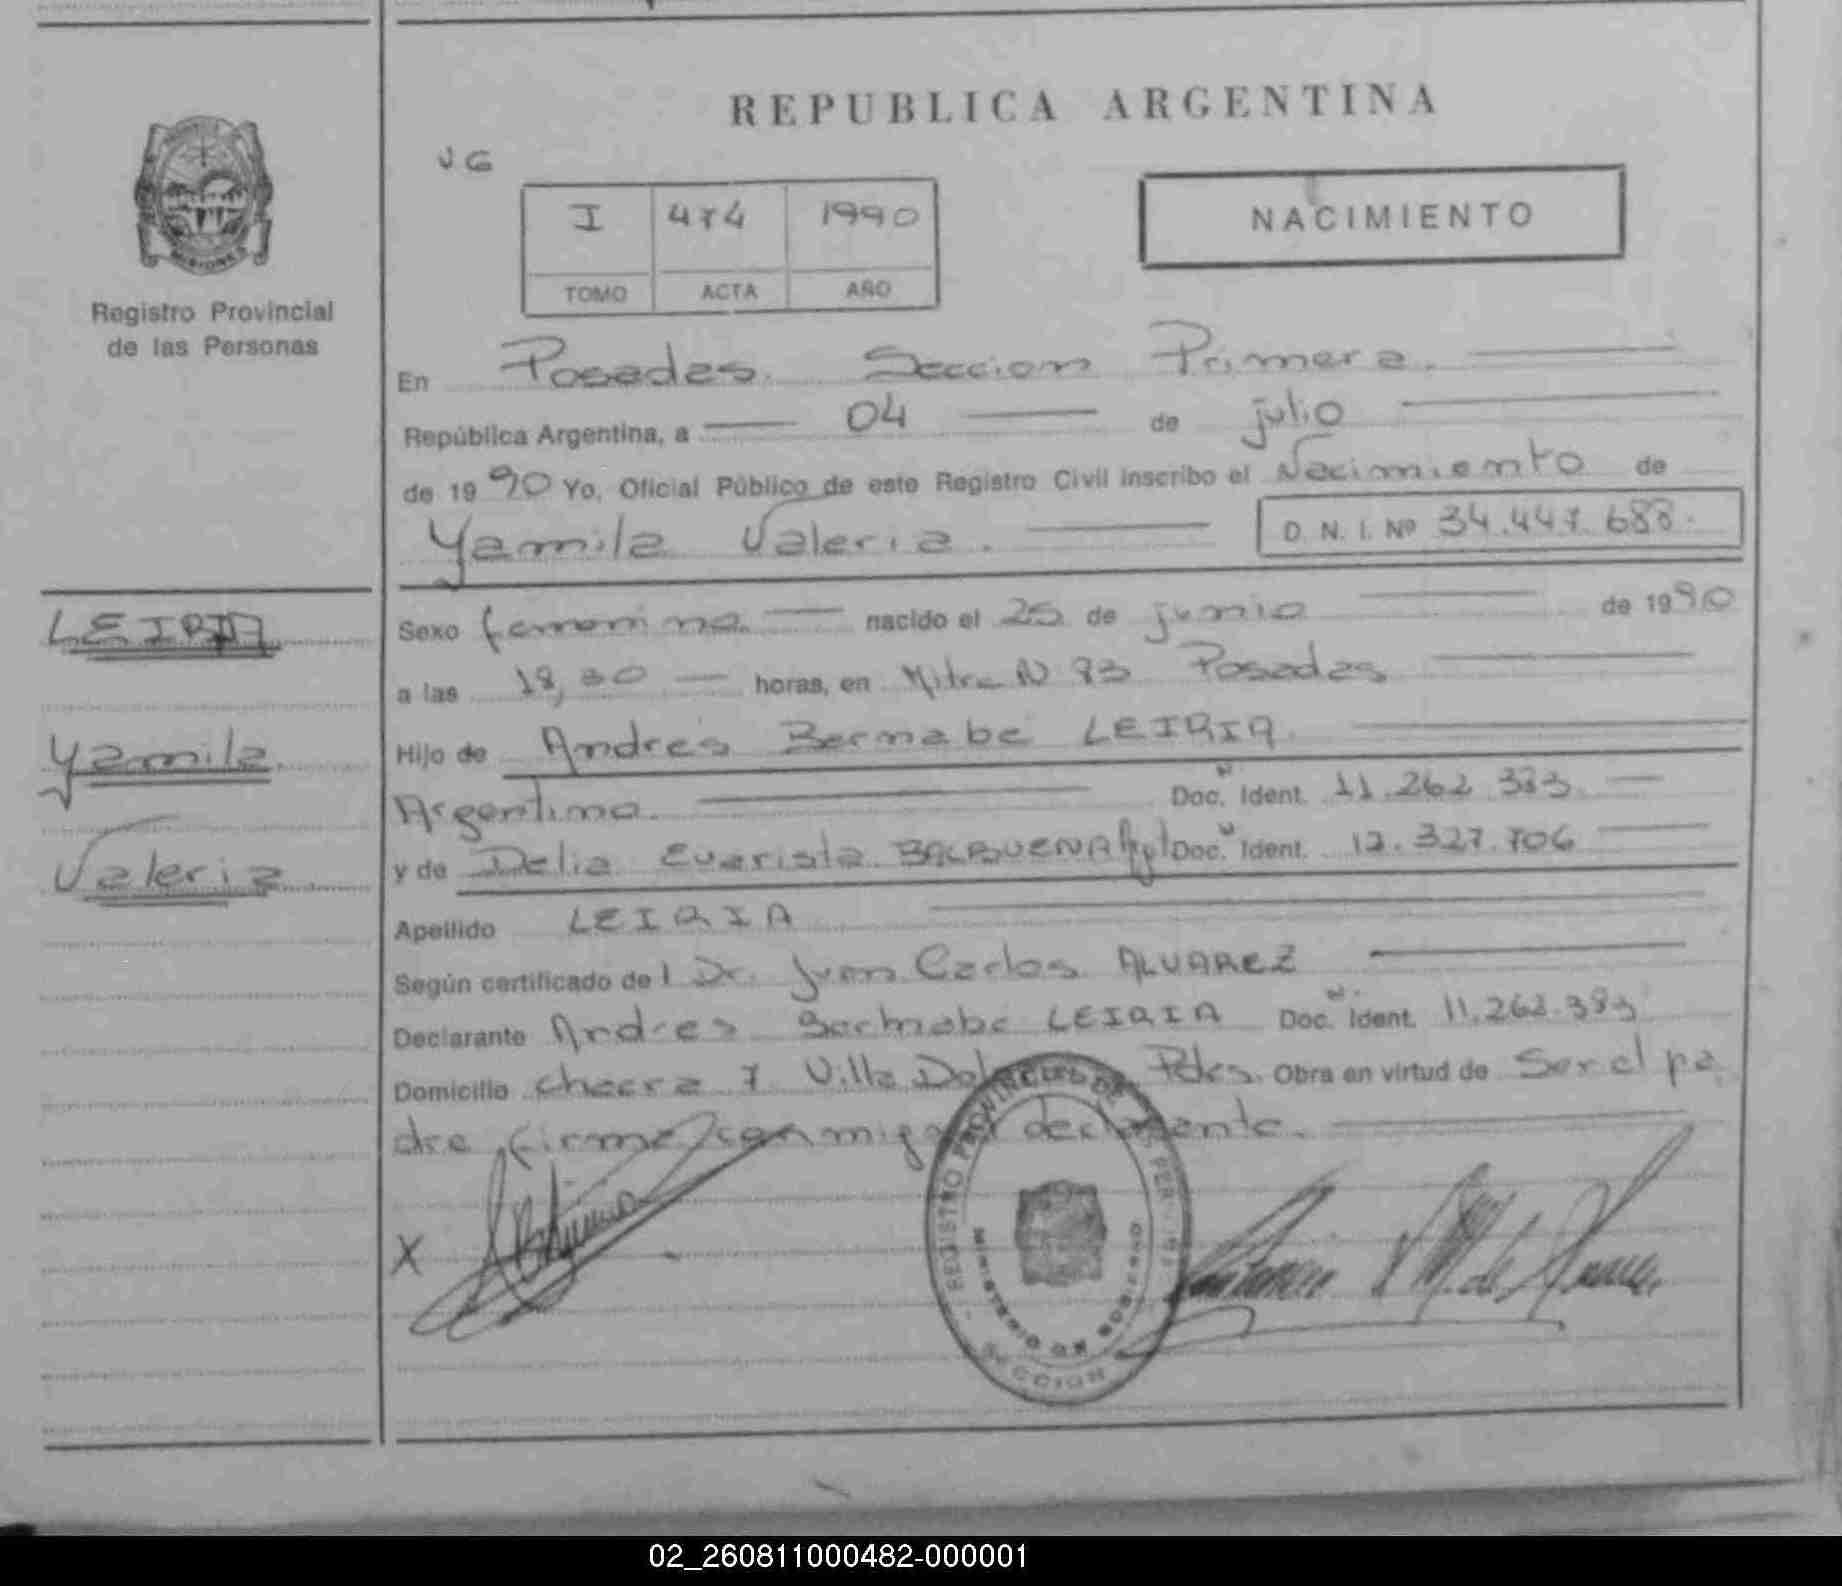 REPUBLICA ARGENTINA
VG
MISIONES
Registro Provincial
de las Personas
I 474 1990
TOMO ACTA AÑO
NACIMIENTO
En Posadas. Seccion Primera.
República Argentina, a 04 de julio
de 1990 Yo, Oficial Público de este Registro Civil inscribo el Nacimiento de
Yamila Valeria. D. N. I. Nº 34.447.688.
LEIRIA
Yamila
Valeria
Sexo femenino nacido el 25 de junio de 1990
a las 18,30 horas, en Mitre N 93 Posadas
Hijo de Andres Bernabe LEIRIA
Argentino. Doc. Ident. 11.262.383
y de Delia Evarista BALBUENA Doc. Ident. 12.327.706
Apellido LEIRIA
Según certificado del Dr. Juan Carlos ALVAREZ
Declarante Andres Bernabe LEIRIA Doc. Ident. 11.262.383
Domicilio chacra 7 Villa Pdas. Obra en virtud de Ser el pa
dre, firma conmigo declarante.
X
REGISTRO PROVINCIAL DE LAS PERSONAS
MINISTERIO DE GOBIERNO
SECCION
02_260811000482-000001